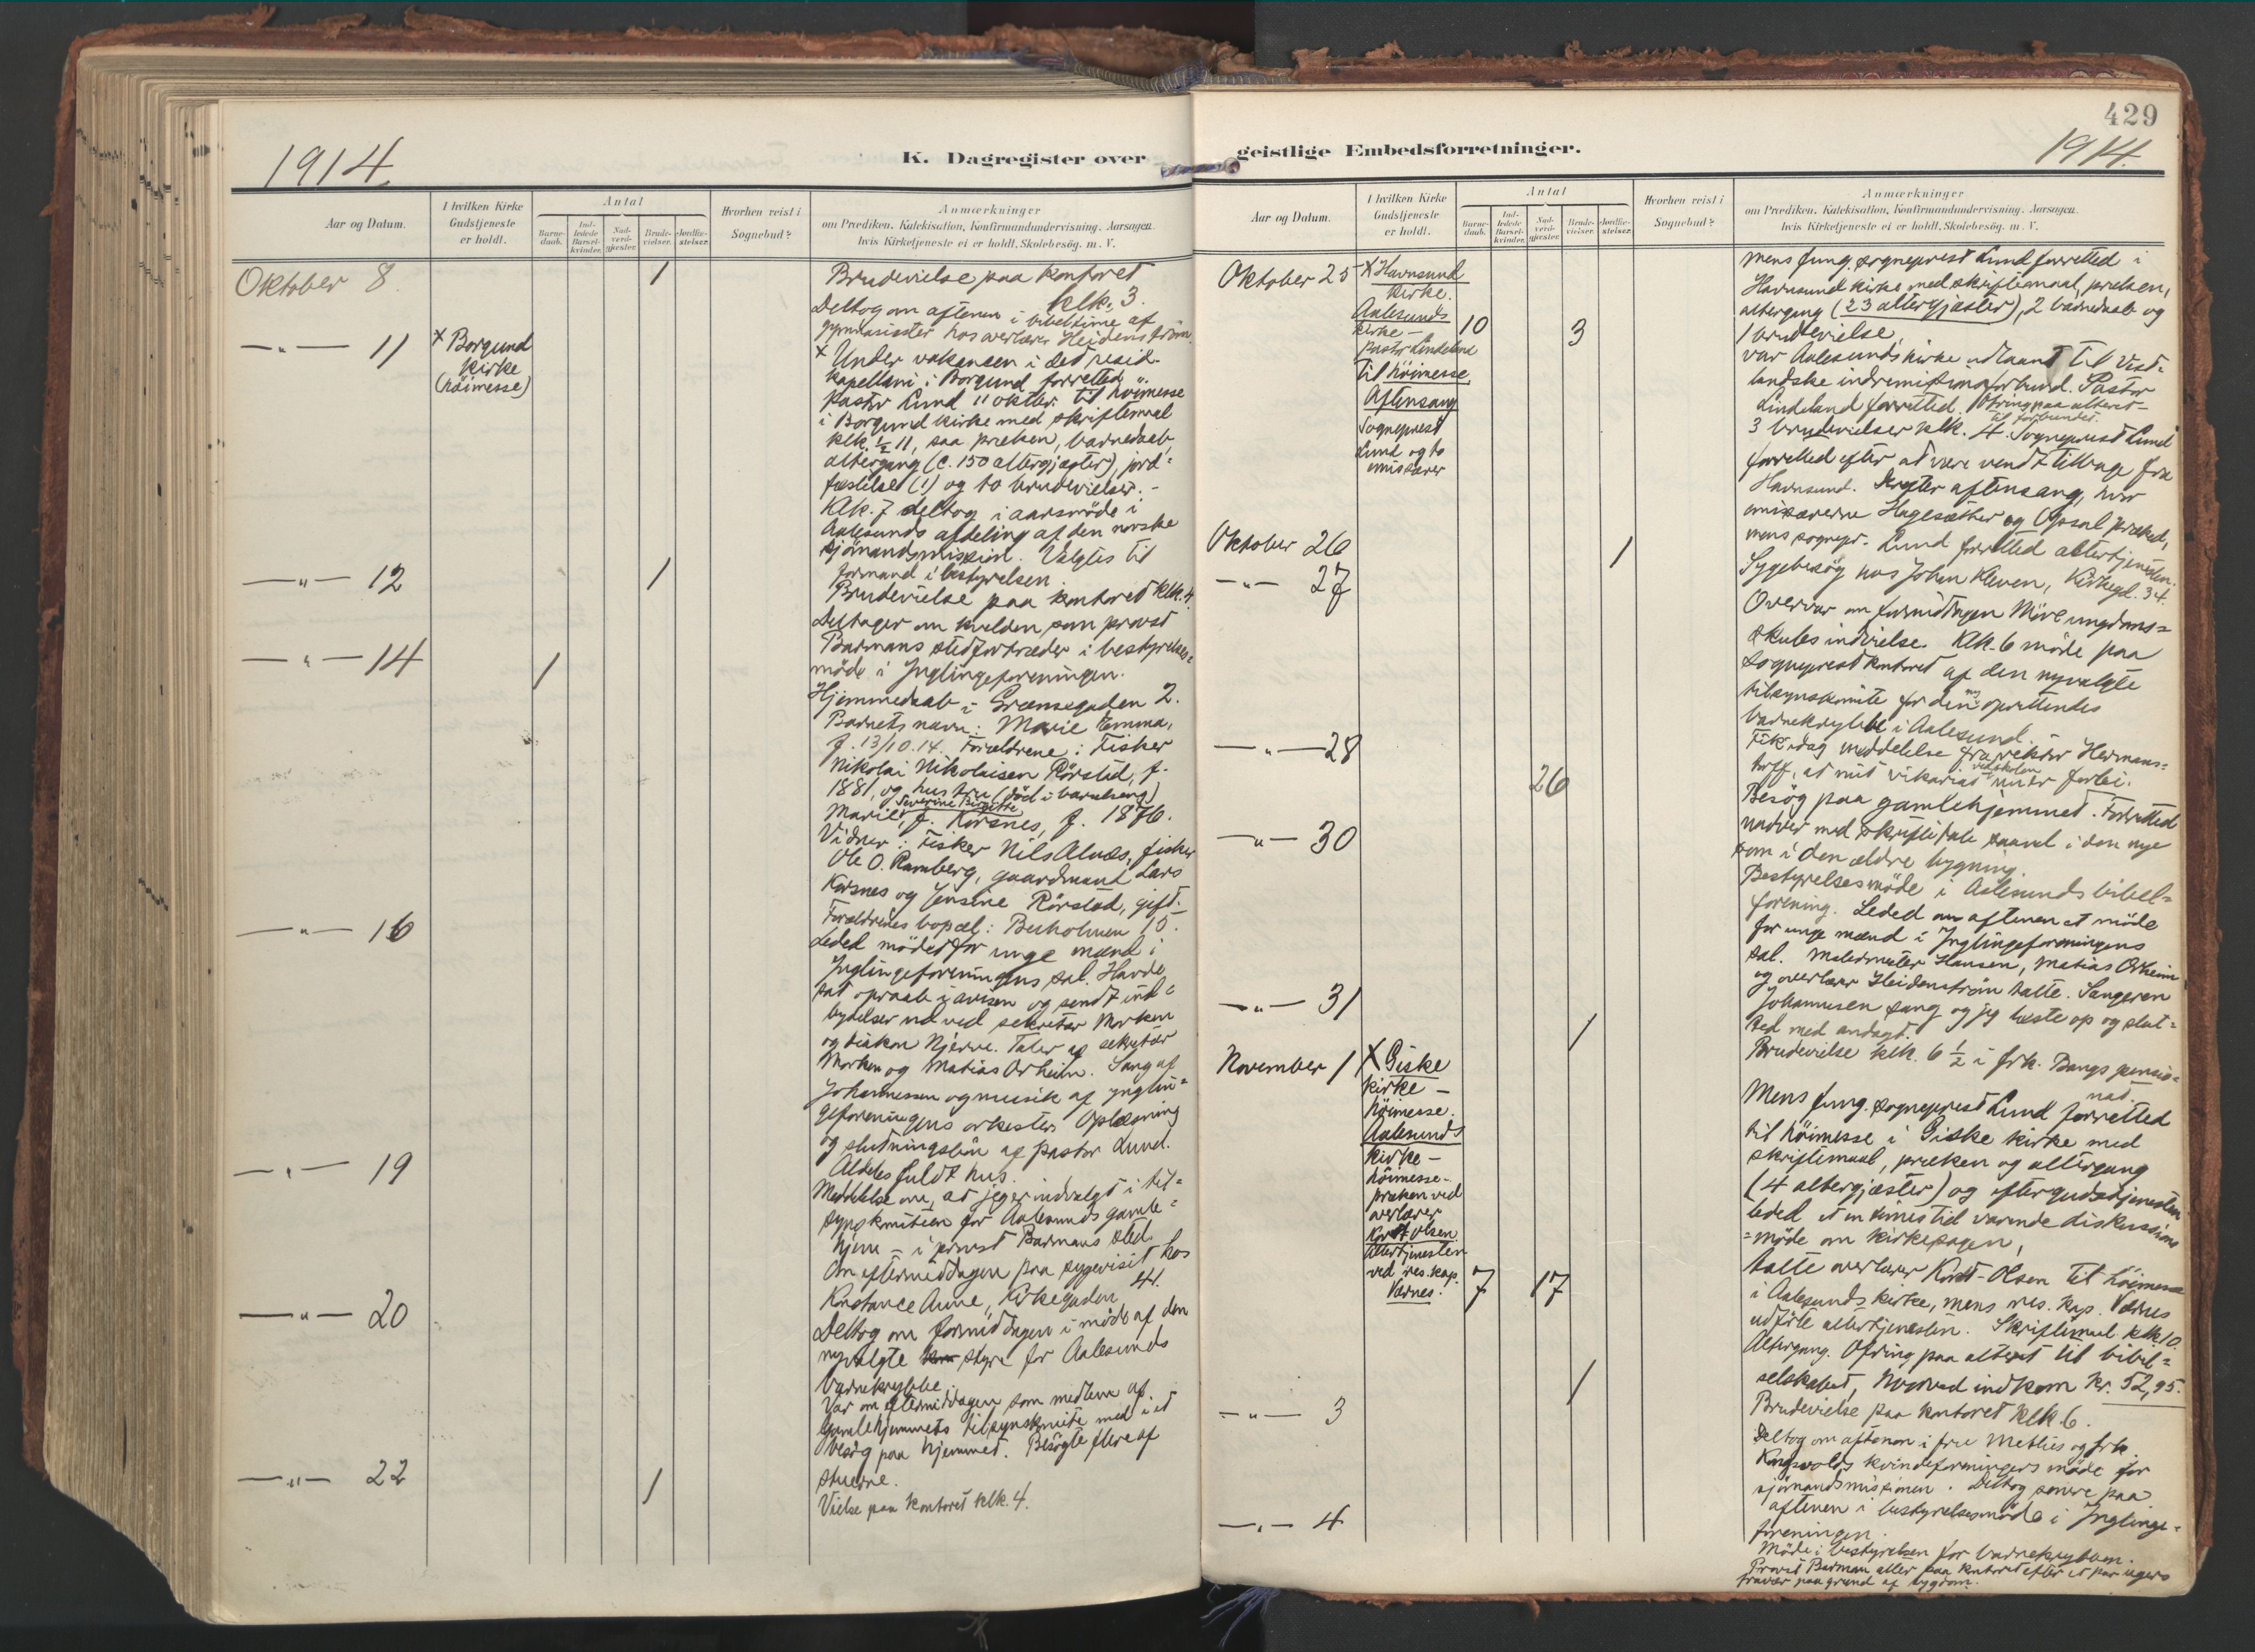 1914
K. Dagregister over
Aar og Datum.
I hvilken Kirke
Gudstjeneste
er holdt.
Antal
Barne-
daab.
Ind-
ledede
Barsel-
kvinder.
Nad-
verd-
gjester.
Brude-
vielser.
Jordfæ-
stelser.
Hvorhen reist i
Sognebud?
Anmærkninger
om Prædiken, Katekisation, Konfirmandundervisning, Aarsagen,
hvis Kirketjeneste ei er holdt, Skolebesög. m. V.
Oktober 8
1
Brudevielse paa kontoret
klk. 3.
Deltog om aftenen i bibeltime af
gymnasiaster hos overlærer Heidenström.
—"— 11
x Borgund
kirke
(höimesse)
x Under vakansen i det resid.
kapellani i Borgund forretted
Pastor Lund 11 oktbr. til höimesse
i Borgund kirke med skriftemaal
klk. ½ 11, saa præken, barnedaab,
altergang (c. 150 altergjæster), jord=
fæstelse (1) og to brudevielser. –
Klk. 7 deltog i aarsmöde i
Aalesunds afdeling af den norske
sjömandsmission. Valgtes til
formand i bestyrelsen.
—"— 12
1
Brudevielse paa kontoret klk. 4.
Deltager om kvelden som provst
Barmans stedfortræder i bestyrelses=
möde i Ynglingeforeningen.
—"— 14
1
Hjemmedaab i Grænsegaden 2.
Barnets navn: Marie Emma,
f. 13/10.14. Forældrene: Fisker
Nikolai Nikolaisen Rörstad, f.
1881, og hustru (död i barselseng)
Severine Birgitte
Marie, f. Korsnes, f. 1876.
Vidner: Fisker Nils Alnæs, fisker
Ole O. Ramberg, gaardmand Lars
Korsnes og Jensine Rörstad, gift.
Forældrenes bopæl: Buholmen 15.
—"— 16
Leded möde for unge mænd i
Ynglingeforeningens sal. Havde
sat opraab i avisen og sendt ind=
bydelser ud ved sekretær Morken
og diakon Njerve. Taler af sekretær
Morken og Matias Orheim. Sang af
Johannessen og musik af ynglin=
geforeningens orkester. Oplæsning
og slutningsbön af pastor Lund.
Aldeles fuldt hus.
—"— 19
Meddelelse om, at jeg er indvalgt i til=
synskomiteen for Aalesunds gamle=
hjem – i provst Barmans sted.
Om eftermiddagen paa sygevisit hos
Konstance Aune, Kirkegaden 41.
—"— 20
Deltog om formiddagen i möde af den
nyvalgte styre for Aalesunds
barnekrybbe.
Var om eftermiddagen som medlem af
gamlehjemmets tilsynskomite med i et
besög paa hjemmet. Besögte flere af
stuerne.
—"— 22
1
Vielse paa kontoret klk. 4.
429
1914.
geistlige Embedsforretninger.
Aar og Datum.
I hvilken Kirke
Gudstjeneste
er holdt.
Antal
Barne-
daab.
Ind-
ledede
Barsel-
kvinder.
Nad-
verd-
gjester.
Brude-
vielser.
Jordfæ-
stelser.
Hvorhen reist i
Sognebud?
Anmærkninger
om Prædiken, Katekisation, Konfirmandundervisning, Aarsagen,
hvis Kirketjeneste ei er holdt, Skolebesög. m. V.
Oktober 25
x Havnsund
kirke.
Aalesunds
kirke –
pastor Lindeland
til höimesse.
Aftensang
Sogneprest
Lund og to
emissærer
10
3
Mens fung. sogneprest Lund forretted i
Havnsund kirke med skriftemaal, præken,
altergang (23 altergjæster), 2 barnedaab og
1 brudevielse,
var Aalesunds kirke udlaant til Vest=
landske indremissionsforbund. Pastor
Lindeland forretted. Ofring paa alteret
til forbundet.
3 brudevielser klk. 4. Sogneprest Lund
forretted efter at være vendt tilbage fra
Havnsund. Derefter aftensang, hvor
emissærerne Hagesæther og Opsal præked,
mens sognepr. Lund forretted altertjenesten.
Oktober 26
1
Sygebesög hos Johan Kleven, Kirkegd. 34.
—"— 27
Overvar om formiddagen Möre ungdoms=
skules indvielse. Klk. 6 möde paa
sogneprestkontoret af den nyvalgte
tilsynskomite for den ny oprettendes
barnekrybbe i Aalesund.
—"— 28
26
Fik idag meddelelse fra rektor Hermans=
torff, at mit vikariat ved skolen nu er forbi.
Besög paa gamlehjemmet. Forretted
nadver med skriftetale saavel i den nye
som i den ældre bygning.
—"— 30
Bestyrelsesmöde i Aalesunds bibel=
forening. Leded om aftenen et möde
for unge mænd i Ynglingeforeningens
sal. Malermester Hansen, Matias Orheim
og overlærer Heidenström talte. Sangeren
Johannesen sang og jeg læste op og slut=
ted med andagt.
—"— 31
1
Brudevielse klk. 6 ½ i frk. Bangs pensio=
nat.
November 1
x Giske
kirke –
höimesse.
Aalesunds
kirke –
höimesse-
præken ved
overlærer
Kordt Olsen
Altertjenesten
ved res. kap.
Værnes.
7
17
Mens fung. sogneprest Lund forretted
til höimesse i Giske kirke med
skriftemaal, præken og altergang
(4 altergjæster) og efter gudstjenesten
leded et en times tid varende diskussions
=möde om kirkesagen,
talte overlærer Kordt-Olsen til höimesse
i Aalesunds kirke, mens res. kap. Værnes
udförte altertjenesten. Skriftemaal klk. 10.
Altergang. Ofring paa alteret til bibel=
selskabet, hvorved indkom kr. 52,95.
1
Brudevielse paa kontoret klk 6.
—"— 3
Deltog om aftenen i fru Methies og frk.
Kongsvolds kvindeforeningers möde for
sjömandsmissionen. Deltog senere paa
aftenen i bestyrelsesmöde i Ynglinge=
foreningen.
—"— 4
Möde i bestyrelsen for barnekrybben.
Provst Barman atter paa kontoret efter et par ugers
fravær paa grund af sygdom.